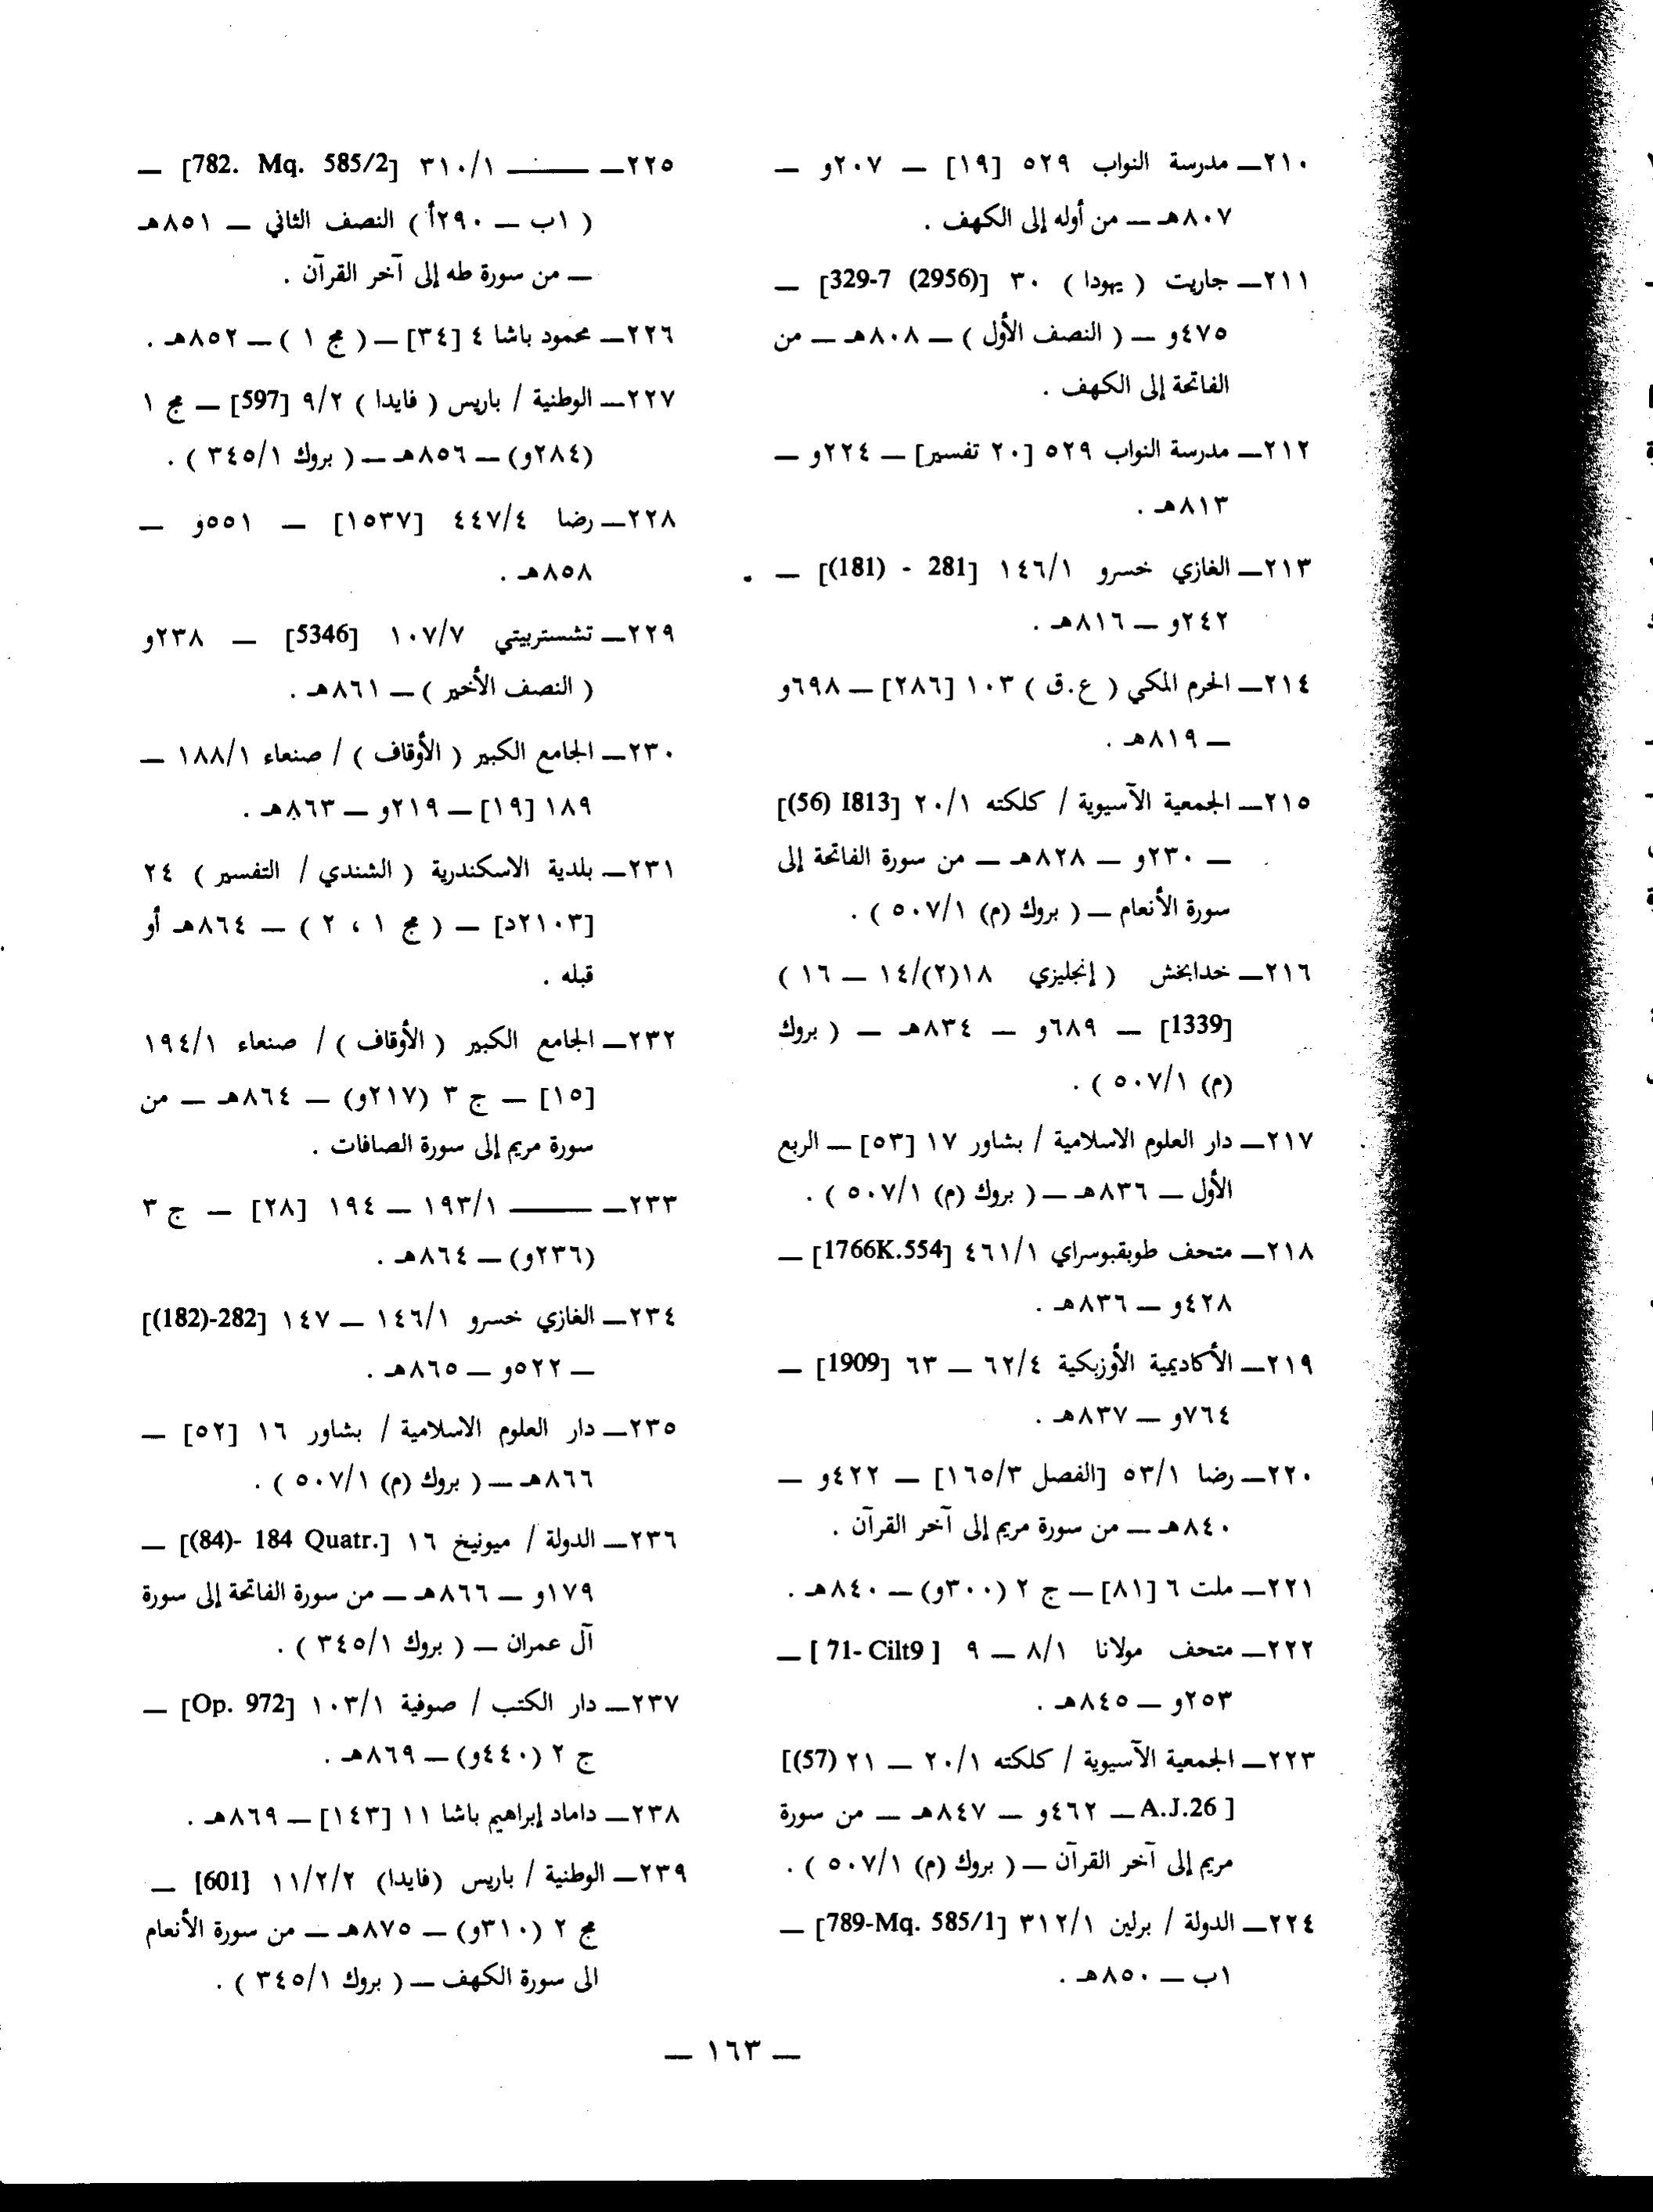 ٢١٠ــ مدرسة النواب ٥٢٩ [١٩] ــ ٢٠٧و ــ
٨٠٧هـ ــ من أوله إلى الكهف .
٢١١ــ جاريت ( يهودا ) ٣٠ [(2956) 329-7] ــ
٤٧٥و ــ ( النصف الأول ) ــ ٨٠٨هـ ــ من
الفاتحة إلى الكهف .
٢١٢ــ مدرسة النواب ٥٢٩ [٢٠ تفسير] ــ ٢٢٤و ــ
٨١٣هـ .
٢١٣ــ الغازي خسرو ١٤٦/١ [281 - (181)] ــ
٢٤٢و ــ ٨١٦هـ .
٢١٤ــ الحرم المكي ( ع.ق ) ١٠٣ [٢٨٦] ــ ٦٩٨و
ــ ٨١٩هـ .
٢١٥ــ الجمعية الآسيوية / كلكته ٢٠/١ [I813 (56)]
ــ ٢٣٠و ــ ٨٢٨هـ ــ من سورة الفاتحة إلى
سورة الأنعام ــ ( بروك (م) ٥٠٧/١ ) .
٢١٦ــ خدابخش ( إنجليزي ١٨(٢)/١٤ ــ ١٦ )
[1339] ــ ٦٨٩و ــ ٨٣٤هـ ــ ( بروك
(م) ٥٠٧/١ ) .
٢١٧ــ دار العلوم الاسلامية / بشاور ١٧ [٥٣] ــ الربع
الأول ــ ٨٣٦هـ ــ ( بروك (م) ٥٠٧/١ ) .
٢١٨ــ متحف طوبقبوسراي ٤٦١/١ [1766K.554] ــ
٤٢٨و ــ ٨٣٦هـ .
٢١٩ــ الأكاديمية الأوزبكية ٦٢/٤ ــ ٦٣ [1909] ــ
٧٦٤و ــ ٨٣٧هـ .
٢٢٠ــ رضا ٥٣/١ [الفصل ١٦٥/٣] ــ ٤٢٢و ــ
٨٤٠هـ ــ من سورة مريم إلى آخر القرآن .
٢٢١ــ ملت ٦ [٨١] ــ ج ٢ (٣٠٠و) ــ ٨٤٠هـ .
٢٢٢ــ متحف مولانا ٨/١ ــ ٩ [71- Cilt9 ] ــ
٢٥٣و ــ ٨٤٥هـ .
٢٢٣ــ الجمعية الآسيوية / كلكته ٢٠/١ ــ ٢١ (57)]
[ A.J.26 ــ ٤٦٢و ــ ٨٤٧هـ ــ من سورة
مريم إلى آخر القرآن ــ ( بروك (م) ٥٠٧/١ ) .
٢٢٤ــ الدولة / برلين ٣١٢/١ [789-Mq. 585/1] ــ
١ب ــ ٨٥٠هـ .
٢٢٥ــ ــــــــ ٣١٠/١ [782. Mq. 585/2] ــ
( ١ب ــ ٢٩٠أ ) النصف الثاني ــ ٨٥١هـ
ــ من سورة طه إلى آخر القرآن .
٢٢٦ــ محمود باشا ٤ [٣٤] ــ ( مج ١ ) ــ ٨٥٢هـ .
٢٢٧ــ الوطنية / باريس ( فايدا ) ٩/٢ [597] ــ مج ١
(٢٨٤و) ــ ٨٥٦هـ ــ ( بروك ٣٤٥/١ ) .
٢٢٨ــ رضا ٤٤٧/٤ [١٥٣٧] ــ ٥٥١و ــ
٨٥٨هـ .
٢٢٩ــ تشستربيتي ١٠٧/٧ [5346] ــ ٢٣٨و
( النصف الأخير ) ــ ٨٦١هـ .
٢٣٠ــ الجامع الكبير ( الأوقاف ) / صنعاء ١٨٨/١ ــ
١٨٩ [١٩] ــ ٢١٩و ــ ٨٦٣هـ .
٢٣١ــ بلدية الاسكندرية ( الشندي / التفسير ) ٢٤
[٢١٠٣د] ــ ( مج ١ ، ٢ ) ــ ٨٦٤هـ أو
قبله .
٢٣٢ــ الجامع الكبير ( الأوقاف ) / صنعاء ١٩٤/١
[١٥] ــ ج ٣ (٢١٧و) ــ ٨٦٤هـ ــ من
سورة مريم إلى سورة الصافات .
٢٣٣ــ ــــــــ ١٩٣/١ ــ ١٩٤ [٢٨] ــ ج ٣
(٢٣٦و) ــ ٨٦٤هـ .
٢٣٤ــ الغازي خسرو ١٤٦/١ ــ ١٤٧ [282-(182)]
ــ ٥٢٢و ــ ٨٦٥هـ .
٢٣٥ــ دار العلوم الاسلامية / بشاور ١٦ [٥٢] ــ
٨٦٦هـ ــ ( بروك (م) ٥٠٧/١ ) .
٢٣٦ــ الدولة / ميونيخ ١٦ [(84)- 184 Quatr.] ــ
١٧٩و ــ ٨٦٦هـ ــ من سورة الفاتحة إلى سورة
آل عمران ــ ( بروك ٣٤٥/١ ) .
٢٣٧ــ دار الكتب / صوفية ١٠٣/١ [Op. 972] ــ
ج ٢ (٤٤٠و) ــ ٨٦٩هـ .
٢٣٨ــ داماد إبراهيم باشا ١١ [١٤٣] ــ ٨٦٩هـ .
٢٣٩ــ الوطنية / باريس (فايدا) ١١/٢/٢ [601] ــ
مج ٢ (٣١٠و) ــ ٨٧٥هـ ــ من سورة الأنعام
الى سورة الكهف ــ ( بروك ٣٤٥/١ ) .
ــ ١٦٣ ــ